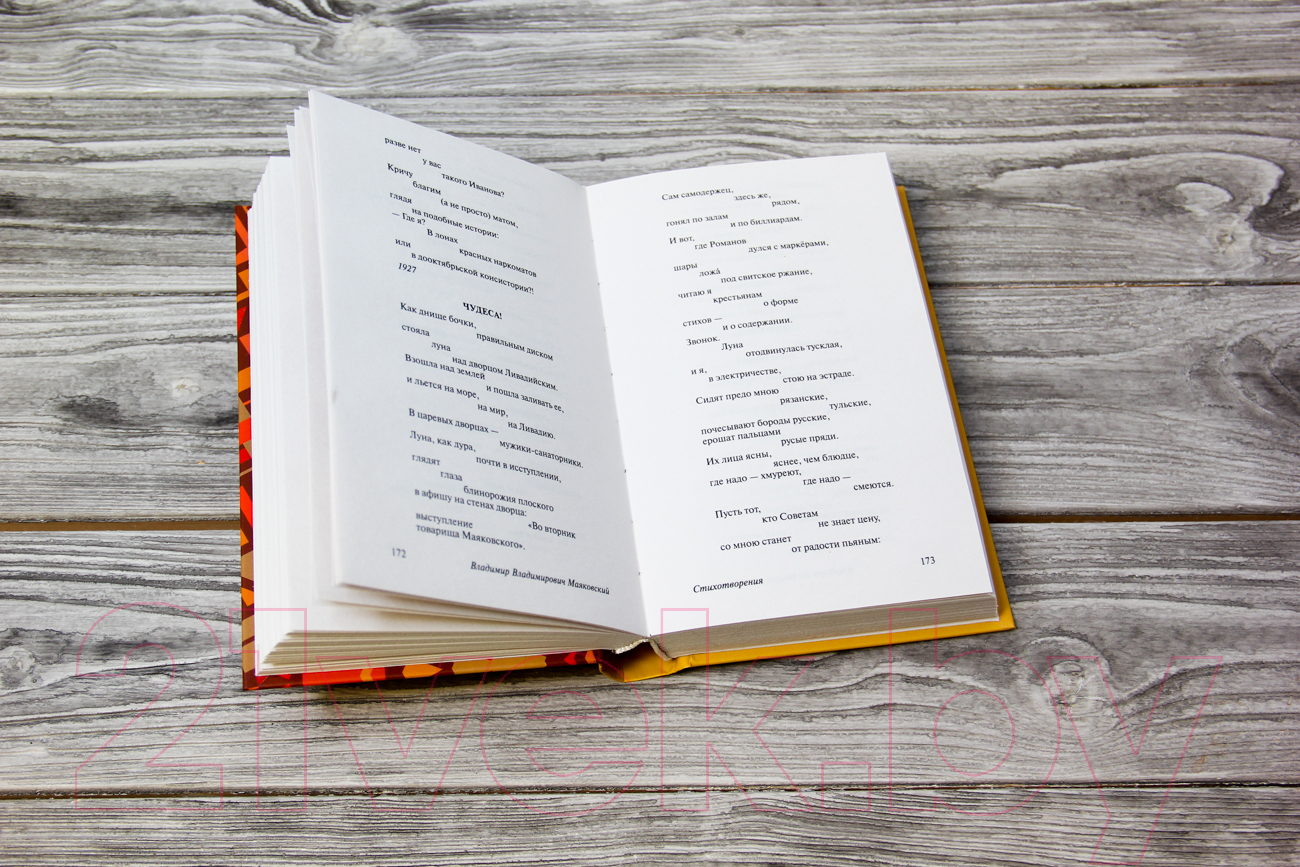 разве нет
у вас
такого Иванова?
Кричу
благим
(а не просто) матом,
глядя
на подобные истории:
— Где я?
В лонах
красных наркоматов
или
в дооктябрьской консистории?!
1927
ЧУДЕСА!
Как днище бочки,
правильным диском
стояла
луна
над дворцом Ливадийским.
Взошла над землей
и пошла заливать ее,
и льется на море,
на мир,
на Ливадию.
В царевых дворцах —
мужики-санаторники.
Луна, как дура,
почти в исступлении,
глядят
глаза
блинорожия плоского
в афишу на стенах дворца:
«Во вторник
выступление
товарища Маяковского».
172
Владимир Владимирович Маяковский
Сам самодержец,
здесь же,
рядом,
гонял по залам
и по биллиардам.
И вот,
где Романов
дулся с маркёрами,
шары
ложа́
под свитское ржание,
читаю я
крестьянам
о форме
стихов —
и о содержании.
Звонок.
Луна
отодвинулась тусклая,
и я,
в электричестве,
стою на эстраде.
Сидят предо мною
рязанские,
тульские,
почесывают бороды русские,
ерошат пальцами
русые пряди.
Их лица ясны,
яснее, чем блюдце,
где надо — хмуреют,
где надо —
смеются.
Пусть тот,
кто Советам
не знает цену,
со мною станет
от радости пьяным:
173
Стихотворения
21vek.by